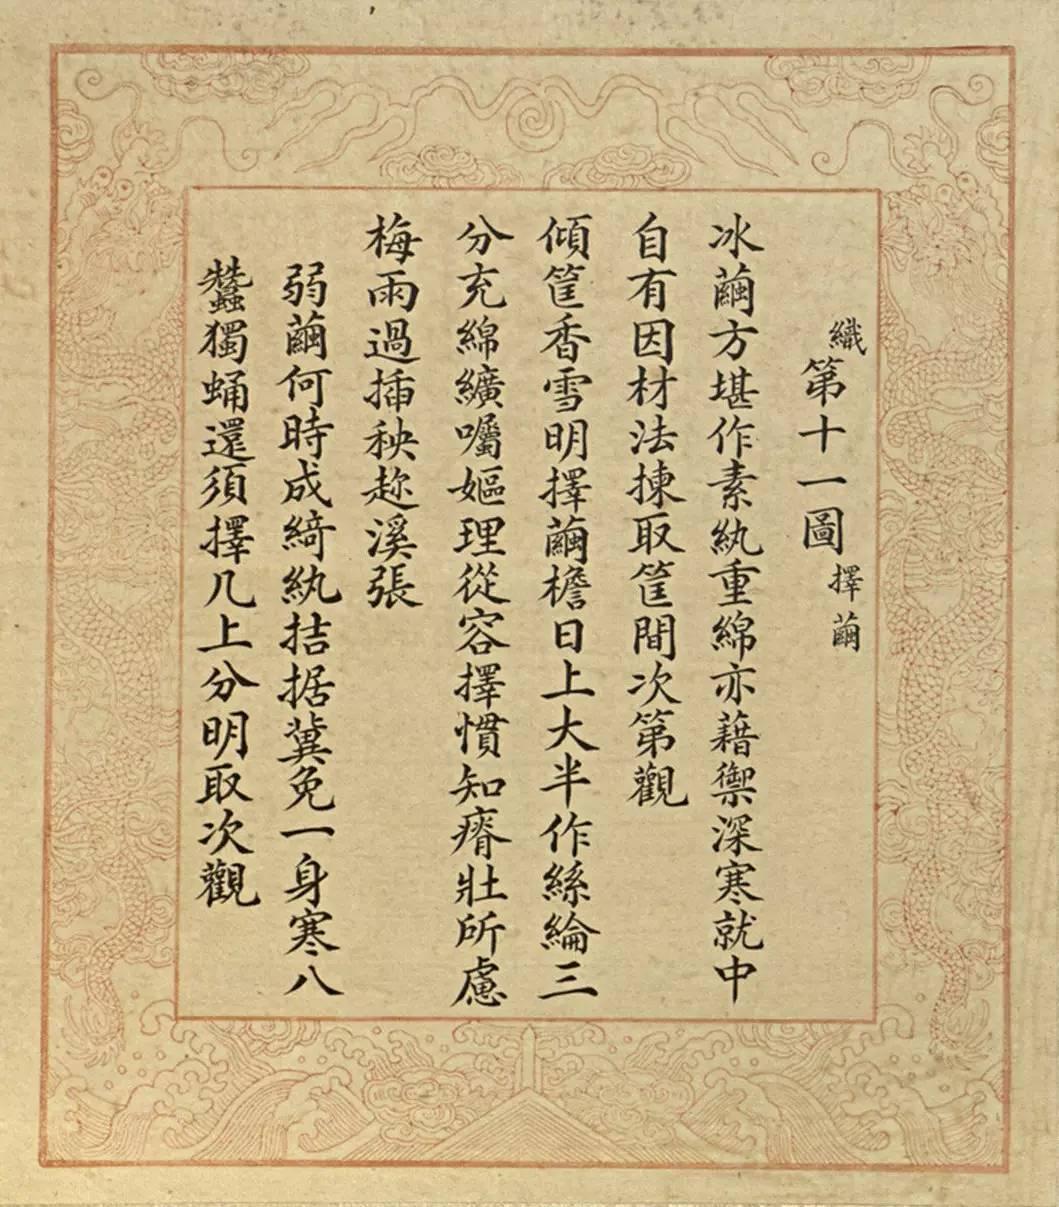 織第十一圖擇繭
冰繭方堪作素紈重綿亦藉禦深寒就中
自有因材法揀取筐間次第觀
傾筐香雪明擇繭檐日上大半作絲綸三
分充綿纊囑嫗理從容擇慣知瘠壯所慮
梅雨過插秧趂溪張
弱繭何時成綺紈拮据冀免一身寒八
蠶獨蛹還須擇几上分明取次觀